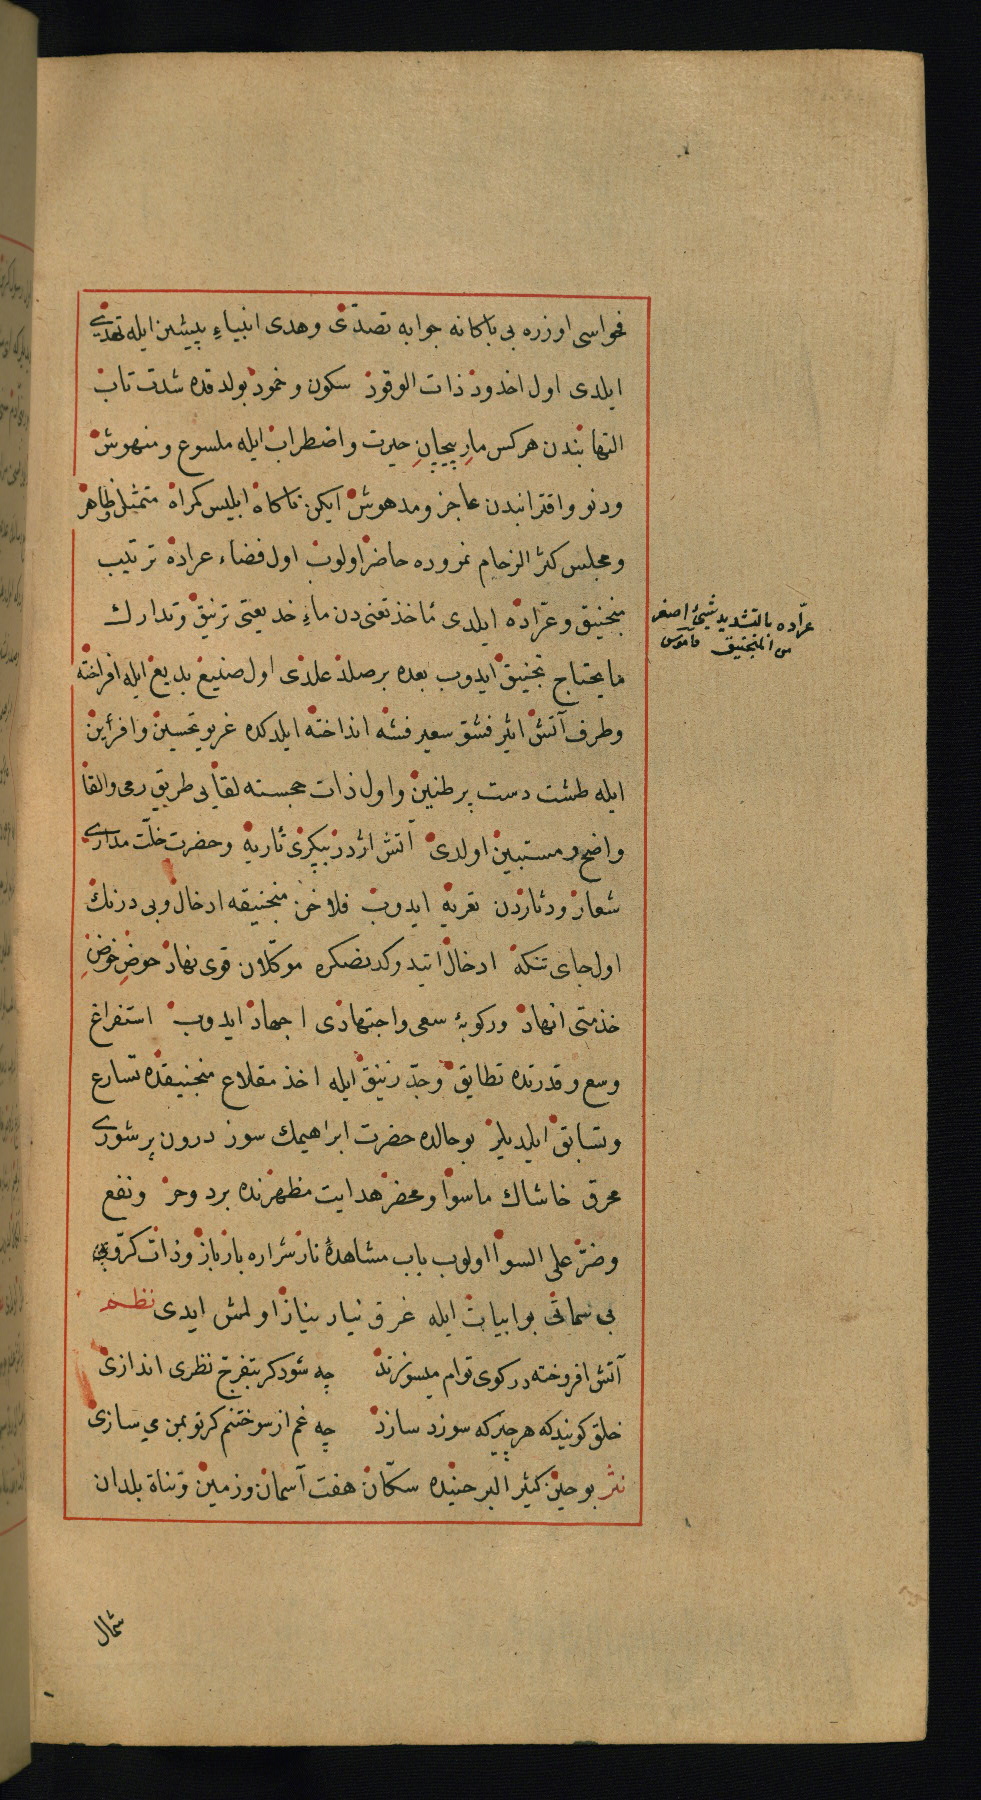 فحواسی اوزره بی باکانه جوابه تصدّی وهدی انبیاءِ پیشین ایله تحدّی
ایلدی اول اخدود ذات الوقود سکون وخمود بولدقده شدت تاب
التهابندن هرکس مارِ پیچانِ حیرت واضطراب ایله ملسوع ومنهوش
ودنو واقترانبدن عاجز ومدهوش ایکن ناکاه ابلیس کمراه متمثل وظاهر
ومجلس کثر الزحام نمروده حاضر اولوب اول فضاء عراده ترتیب
منجنیق وعرّاده ایلدی مأخذ تعنی دن ماءِ خدیعتی ترنیق وتدارك
مایحتاج تجنیق ایدوب بعده برصلد علندی اول صنیع بدیع ایله افراخته
وطرف آتش اثیر فشق سعیر فشنه انداخته ایلدکده غریو تحسین وافرین
ایله طشت دست پرطنین واول ذات خجسته لقایی طریق رمی والقا
واضح ومستبین اولدی آتش اژدر پیکری تأریه وحضرت خلّت مداری
شعار ودثاردن تعریه ایدوب فلاخن منجنیقه ادخال وبی درنك
اول جای تنکه ادخال اتیدوکدنصکره موکّلان قوی نهاد حوضِ خوضِ
خذمتی انهاد ورکوبۀ سعی واجتهادی اجهاد ایدوب استفراغ
وسع وقدرتده تطابق وجدّ زنیق ایله اخذ مقلاع منجنیقده تسارع
وتسابق ایلدیلر بوحالده حضرت ابراهیمك سوز درون پرشوری
محرق خاشاك ماسوا ومحضر هدایت مظهرنده برد وحر ونفع
وضرّ علی السوا اولوب باب مشاهدۀ نار شراره بارباز وذات کرّوبی
بی سماتی بوابیات ایله غرق نیاز بیاز اولمش ایدی نظم
آتش افروخته درکوی توام میسوزند چه شود کر بتفرج نظری اندازی
خلق کویند که هرچیز که سوزد سازد چه غم از سوختنم کرتو بمن می سازی
نثر بوحین کثیر البرحینده سکّان هفت آسمان وزمین وتناة بلدان
عرّاده بالتشدید شیئ اصغر
من المنجنیق قاموس
شمال